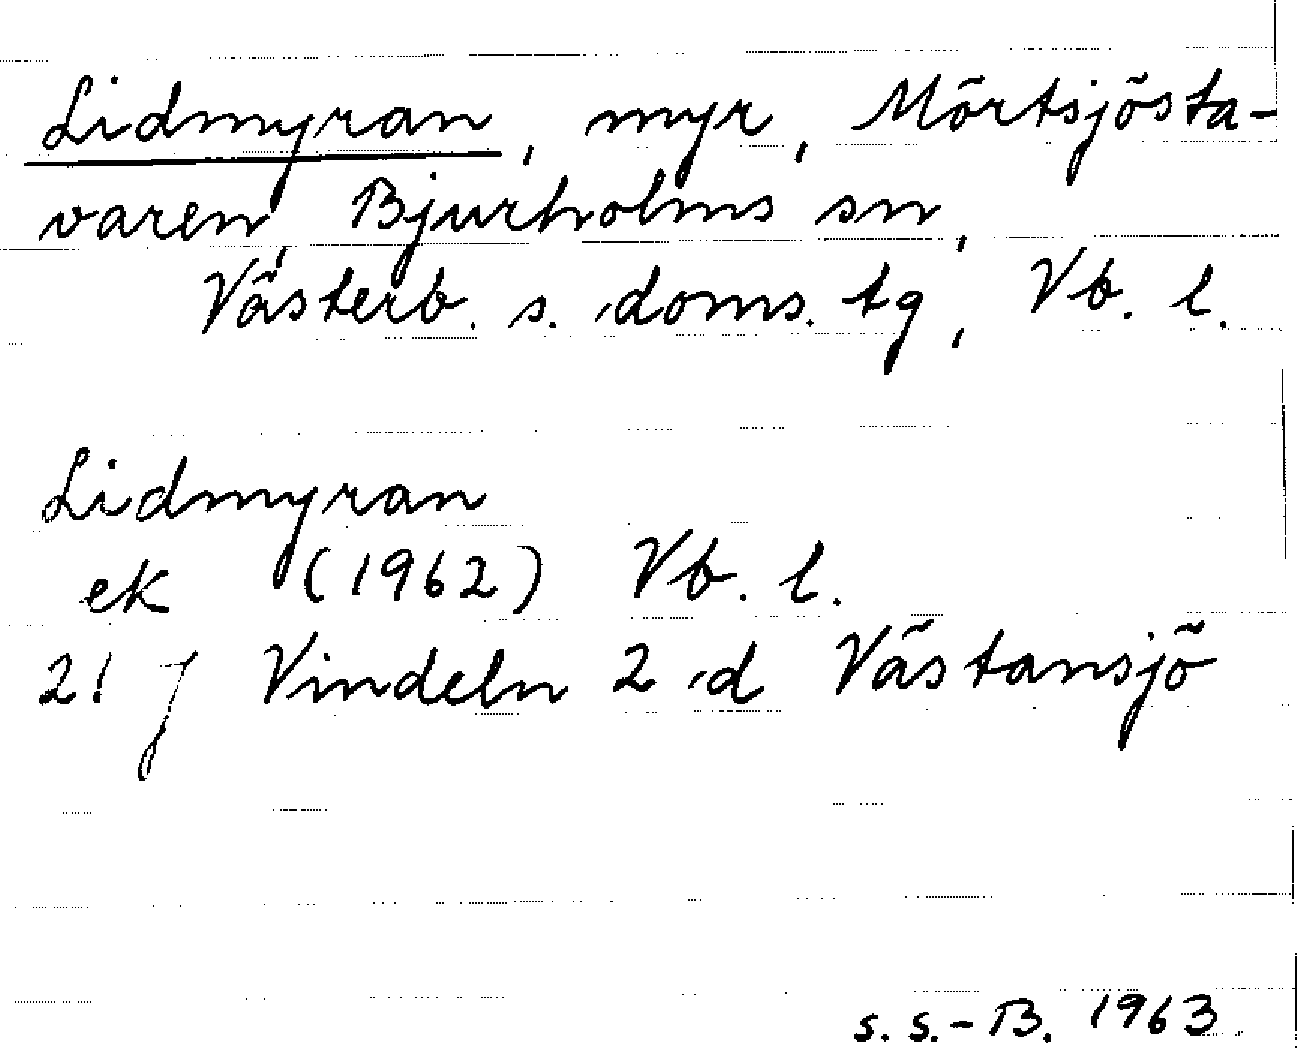 Lidmyran, myr, Mörtsjösta-
varen, Bjurholms sn,
Västerb. s. doms. tg, Vb. l.
Lidmyran
ek (1962) Vb. l.
21 J Vindeln 2 d Västansjö
s. s.-B. 1963